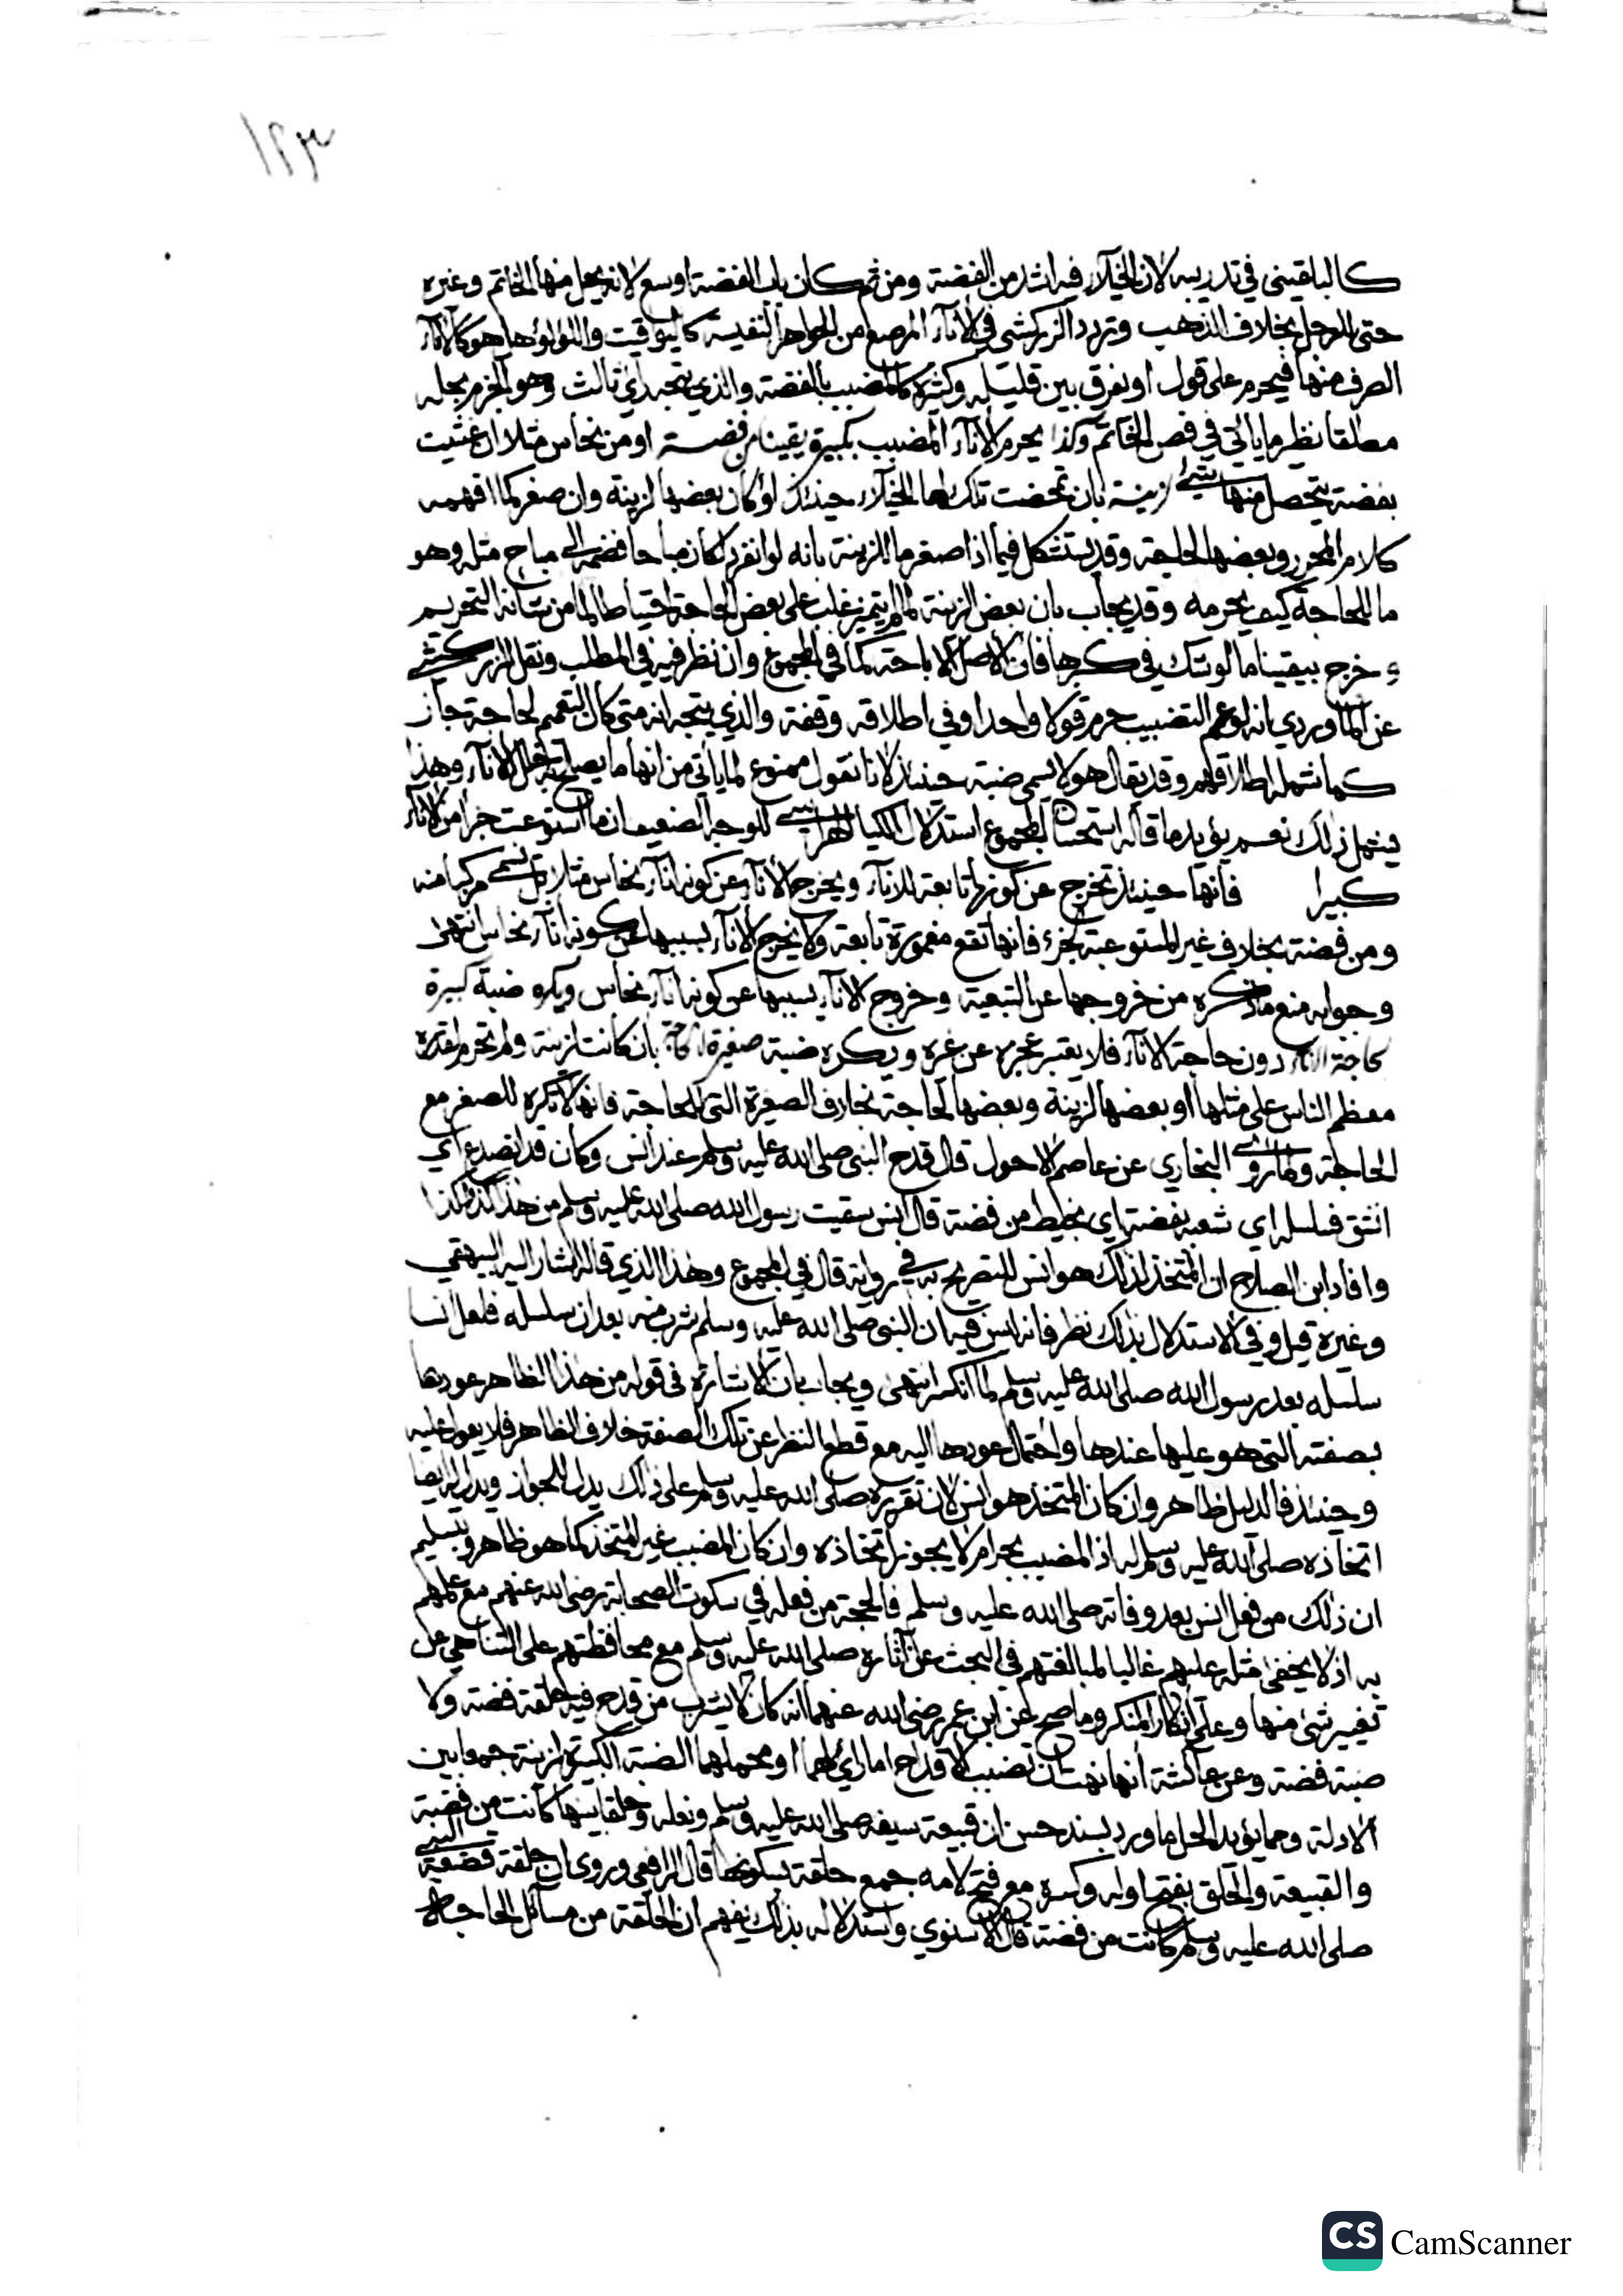 ١٢٣
كالبلقيني في تدريبه لان الخيلآء فيه اشد من الفضة ومن ثم كان باب الفضة اوسع لانه يحل منها الخاتم وغيره
حتى للرجل بخلاف الذهب وتردد الزركشي في الانآء المرصع من الجواهر النفيسة كاليواقيت واللؤلؤ هل هو كالانآء
الصرف منها فيحرم على قول او نفرق بين قليله وكثيره كالمضبب بالفضة والذي يتجه رأي ثالث وهو الجزم بحله
مطلقا نظير ما يأتي في فص الخاتم وكذا يحرم الانآء المضبب بكبيرة يقينا من فضة او من نحاس مثلا ان غشيت
بفضة يتحصل منها شئ لزينة بان تمحضت تلك لها للخيلآء حينئذ او كان بعضها لزينة وان صغر كما افهمه
كلام المحرر وبعضها لحاجة وقد يستشكل فيما اذا صغر ما للزينة بانه لو انفرد لكان مباحا فضمه الى مباح مثله وهو
ما للحاجة كيف يحرمه وقد يجاب بان بعض الزينة لما لم يتميز غلب على بعض الحاجة احتياطا لما من شانه التحريم
وخرج بيقينا ما لو شك في كبرها فان الاصل الاباحة كما في المجموع وان نظر فيه في المطلب ونقل الزركشي
عن الماوردي انه لو عم التضبيب حرم قولا واحدا وفي اطلاقه وقفة والذي يتجه انه متى كان التعميم لحاجة جاز
كما شمله اطلاقهم وقد يقال هو لا يسمى ضبة حينئذ لانا نقول ممنوع لما يأتي من انها ما يصلح به خلل الانآء وهذا
يشمل ذلك نعم يؤيد ما قاله استحسان المجموع استدلال الكيا الهراسي للوجه الضعيف ان ما استوعبت جزأ من الانآء
كبيرا فانها حينئذ تخرج عن كونها تابعة للانآء ويخرج الانآء عن كونه انآء نحاس مثلا بل يسمى مركبا منه
ومن فضة بخلاف غير المستوعبة لجزء فانها تقع مغمورة تابعة ولا يخرج الانآء بسببها عن كونه انآء نحاس انتهى
وجوابه منع ما ذكره من خروجها عن التبعية وخروج الانآء بسببها عن كونه انآء نحاس ويكره ضبة كبيرة
لحاجة الانآء دون حاجة الانآء فلا يعتبر عجزه عن غيره ويكره ضبة صغيرة بان كانت لزينة ولم تحرم لقدرة
معظم الناس على مثلها او بعضها لزينة وبعضها لحاجة بخلاف الصغيرة التي للحاجة فانها لا تكره للصغر مع
الحاجة ولما روى البخاري عن عاصم الاحول قال قدح النبي صلى الله عليه وسلم عند انس وكان قد انصدع اي
انشق فسلسله اي شعبه بفضة اي بخيط من فضة قال انس سقيت رسول الله صلى الله عليه وسلم من هذا كذا وكذا
وافاد ابن الصلاح ان المتخذ لذلك هو انس للتصريح به في رواية قال في المجموع وهذا الذي قاله اشار اليه البيهقي
وغيره قيل وفي الاستدلال بذلك نظر فانه ليس فيه ان النبي صلى الله عليه وسلم شرب منه بعد ان سلسله فلعل انسا
سلسله بعد رسول الله صلى الله عليه وسلم لما انكسر انتهى ويجاب بان الاشارة في قوله من هذا الظاهر عودها
بصفته التي هو عليها عندها واحتمال عودها اليه مع قطع النظر عن تلك الصفة خلاف الظاهر فلا يعول عليه
وحينئذ فالدليل ظاهر وان كان المتخذ هو انس لان تقريره صلى الله عليه وسلم على ذلك يدل للجواز ويدل له ايضا
اتخاذه صلى الله عليه وسلم له اذ المضبب بحرام لا يجوز اتخاذه وان كان المضبب غير المتخذ كما هو ظاهر وبتسليم
ان ذلك من فعل انس بعد وفاته صلى الله عليه وسلم فالحجة من فعله في سكوت الصحابة رضي الله عنهم مع علمهم
به اذ لا يخفى مثله عليهم غالبا لمبالغتهم في البحث عن آثاره صلى الله عليه وسلم مع محافظتهم على التناهي عن
تغيير شئ منها وعلى انكار المنكر وما صح عن ابن عمر رضي الله عنهما انه كان لا يشرب من قدح فيه حلقة فضة ولا
ضبة فضة وعن عآئشة انها نهت ان تضبب الاقداح اما رأي لهما او محملهما الضبة الكبيرة لزينة جمعا بين
الادلة ومما يؤيد الحل ما ورد بسند حسن ان قبيعة سيفه صلى الله عليه وسلم ونعله وحلقا بينها كانت من فضة
والقبيعة والحلق بفتح اوله وكسره مع فتح لامه جمع حلقة بسكونها قال الرافعي وروى ان حلقة قصعة النبي
صلى الله عليه وسلم كانت من فضة قال الاسنوي واستدلاله بذلك يفهم ان الحلقة من مسآئل الحاجة
CS CamScanner